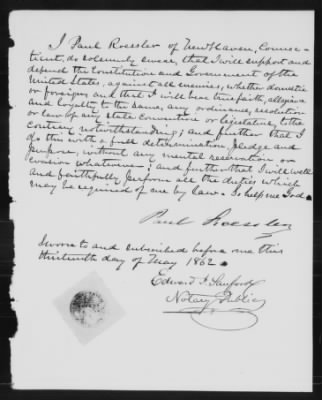 I Paul Roessler of New Haven, Connec-
ticut, do solemnly swear, that I will support and
defend the Constitution and Government of the
United States, against all enemies, whether domestic
or foreign, and that I will bear true faith, allegiance
and loyalty to the same, any ordinance, resolution
or law of any state Convention or legislature, to the
contrary notwithstanding; and further that I
do this with a full determination, pledge and
purpose, without any mental reservation or
evasion whatsoever; and further that I will well
and faithfully perform all the duties which
may be required of me by law. So help me God.
Paul Roessler
Sworn to and subscribed before me this
thirteenth day of May 1862.
Edward I. Sanford
Notary Public